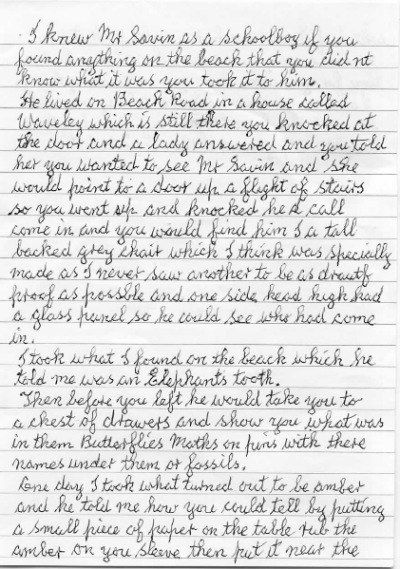 I knew Mr Savin as a schoolboy if you
found anything on the beach that you didnt
know what it was you took it to him.
He lived on Beach Road in a house called
Waveley which is still there you knocked at
the door and a lady answered and you told
her you wanted to see Mr Savin and she
would point to a door up a flight of stairs
so you went up and knocked he d call
come in and you would find him I a tall
backed grey chair which I think was specially
made as I never saw another to be as drautf
proof as possble and one side head high had
a glass panel so he could see who had come
in.
I took what I found on the beach which he
told me was an Elephants tooth.
Then before you left he would take you to
a chest of drawers and show you what was
in them Butterflies Moths on pins with there
names under them or fossils.
One day I took what turned out to be amber
and he told me how you could tell by putting
a small piece of paper on the table rub the
amber on you sleeve then put it near the